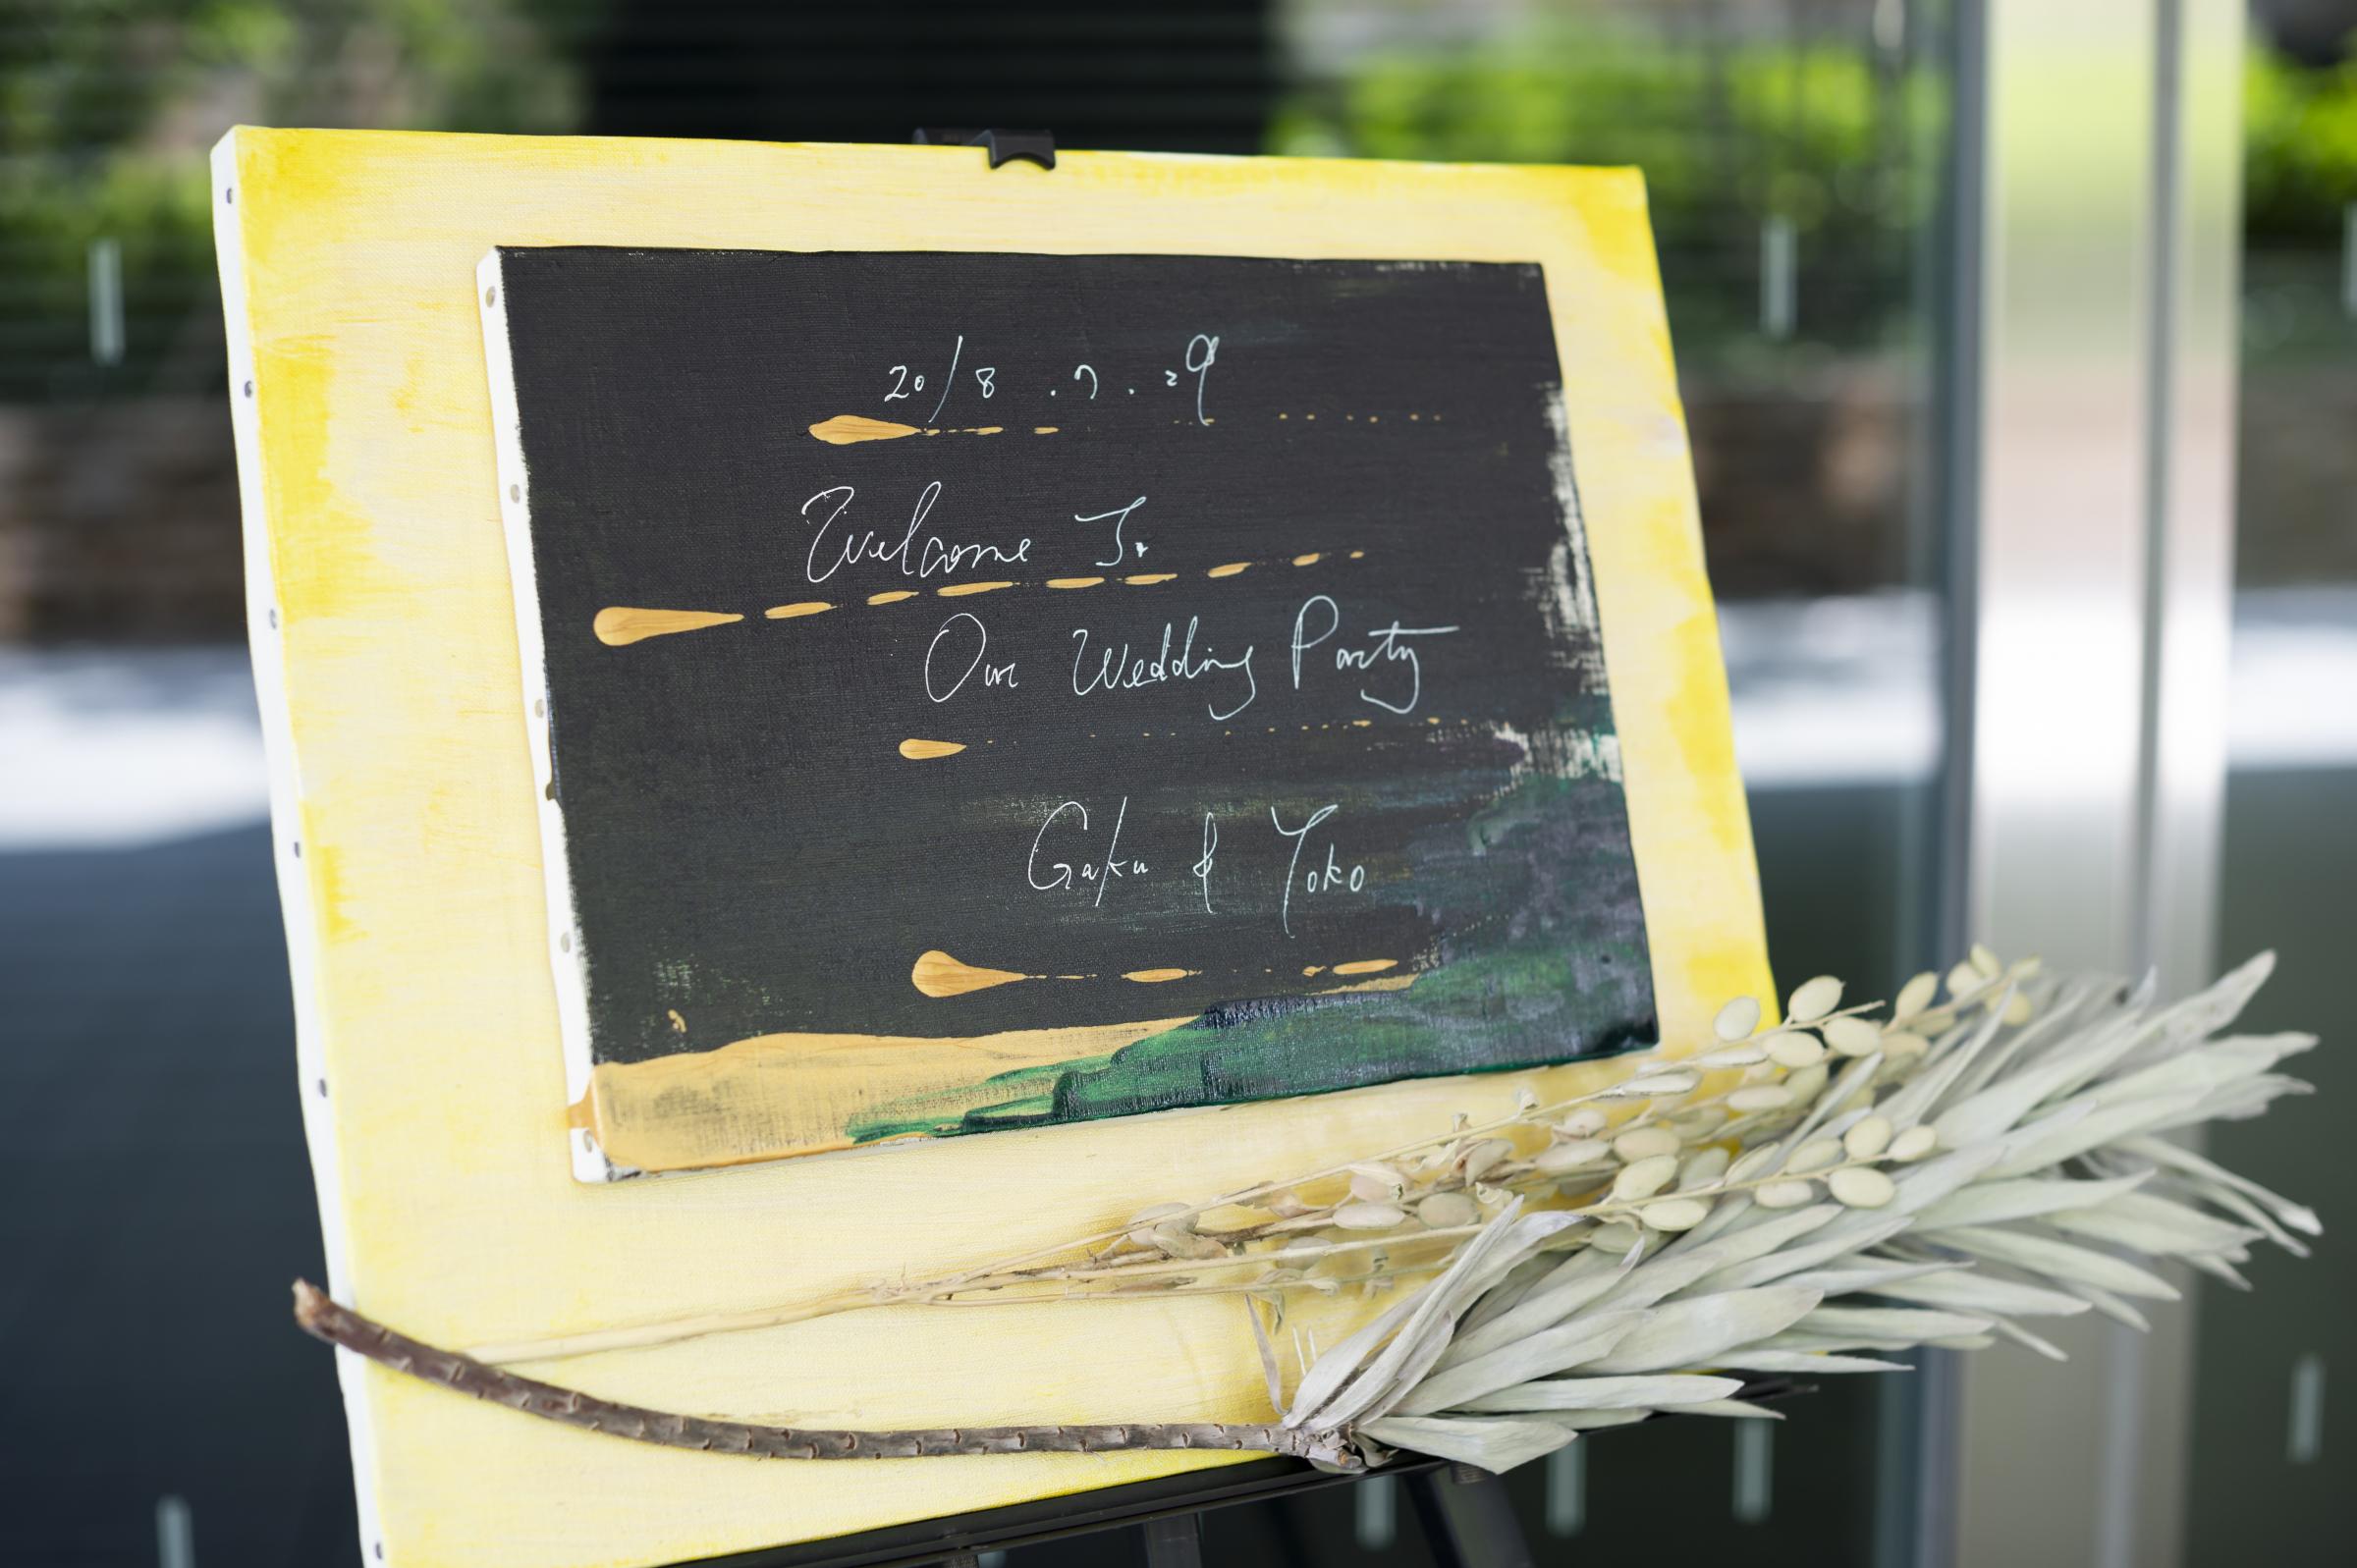 2018.7.29
Welcome To
Our Wedding Party
Gaku & Yoko